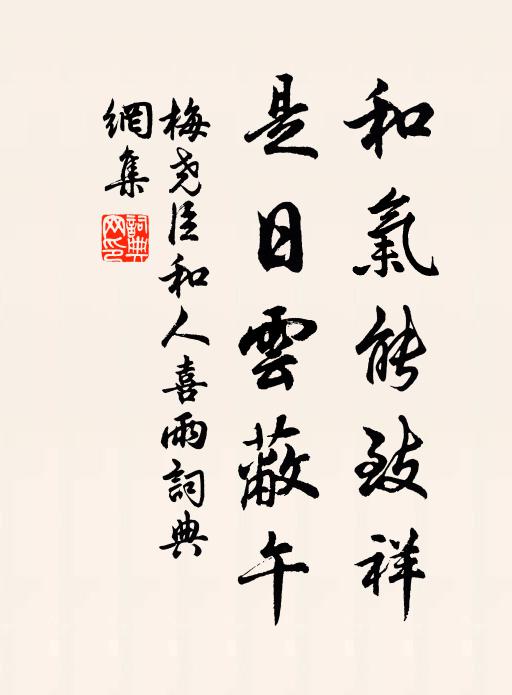 和氣能致祥
是日雲蔽午
梅堯臣和人喜雨詞典
網集
詞典網印